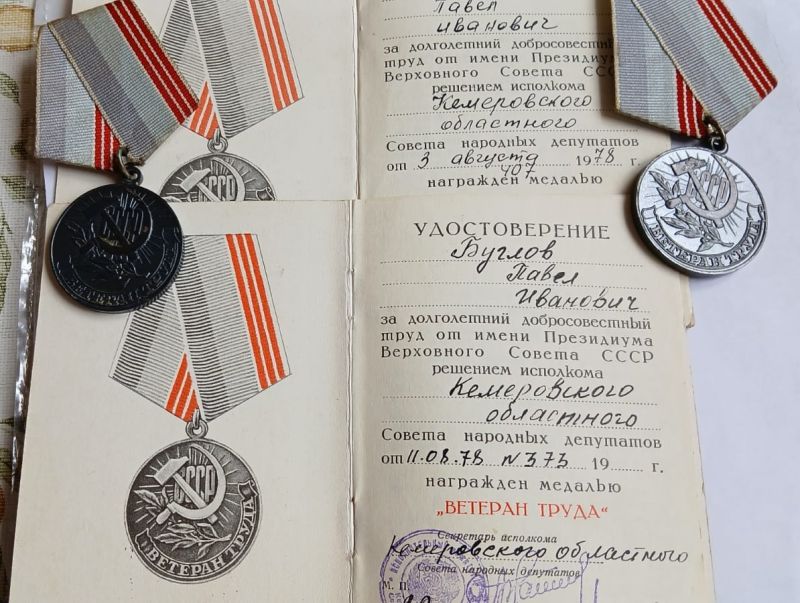 Павел
Иванович
за долголетний добросовестный
труд от имени Президиума
Верховного Совета СССР
решением исполкома
Кемеровского
областного
Совета народных депутатов
от 3 августа 1978 г.
407
награжден медалью
СССР
ВЕТЕРАН ТРУДА
СССР
ВЕТЕРАН ТРУДА
СССР
УДОСТОВЕРЕНИЕ
Буглов
Павел
Иванович
за долголетний добросовестный
труд от имени Президиума
Верховного Совета СССР
решением исполкома
Кемеровского
областного
Совета народных депутатов
от 11.08.78 N 373 19 г.
награжден медалью
„ВЕТЕРАН ТРУДА“
Секретарь исполкома
Кемеровского областного
Совета народных депутатов
М. П.
СССР
ВЕТЕРАН ТРУДА